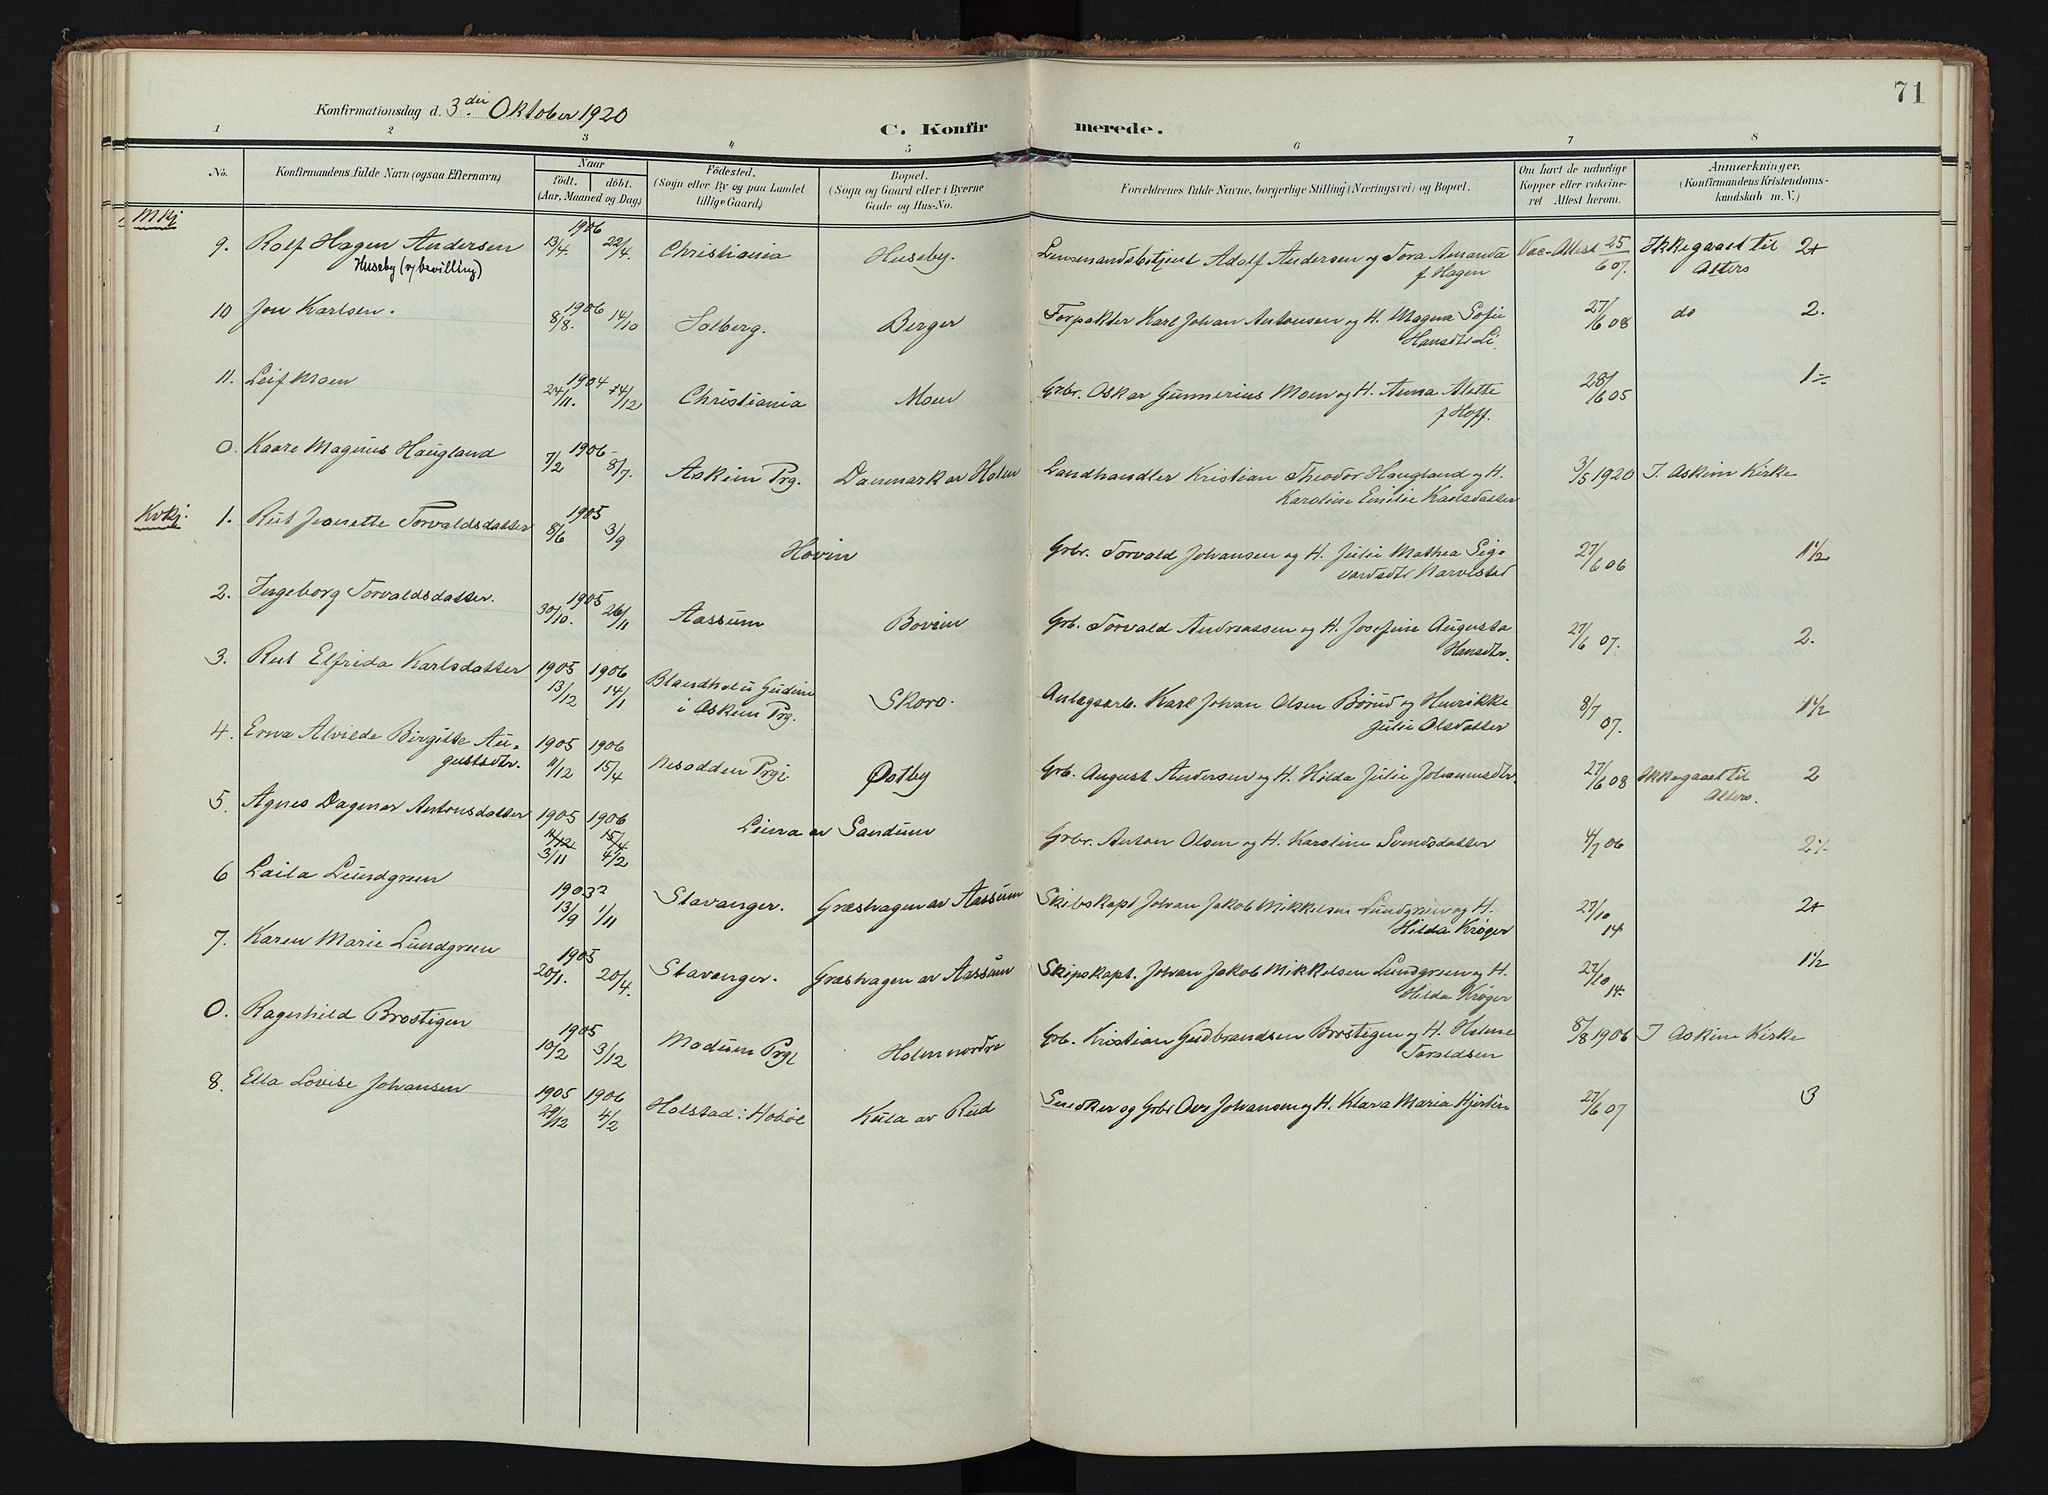 71
Konfirmationsdag d. 3die Oktober 1920
C. Konfirmerede.
1 2 3 4 5 6 7 8
No. Konfirmandens fulde Navn (ogsaa Efternavn) Naar født. døbt. (Aar, Maaned og Dag) Fødested. (Sogn eller By og paa Landet tillige Gaard) Bopæl. (Sogn og Gaard eller i Byerne Gade og Hus-No. Forældrenes fulde Navne, borgerlige Stilling (Næringsvei) og Bopæl. Om havt de naturlige Kopper eller vakcineret Attest herom. Anmærkninger. (Konfirmandens Kristendomskundskab m. V.)
Mkj
9. Rolf Hagen Andersen 1906 13/4. 22/4. Christiania Huseby. Lensmandsbetjent Adolf Andersen og Tora Amanda Vac-Attest 25/6 07. Ikke gaaet til 2+
Huseby (v/bevilling) f Hagen Alters
10 Jon Karlsen. 1906 8/8. 14/10 Solberg. Berger Forpakter Karl Johan Antonsen og H. Magna Sofie 27/6 08 do 2.
Hansdtr Li.
11. Leif Moen 1904 24/11. 14/12 Christiania Moen Grbr. Oskar Gunnerius Moen og H. Anna Alette 28/6 05 1÷
f Hoff.
0. Kaare Magnus Haugland 1906 7/2 8/7. Askim Prg. Danmark av Holm Landhandler Kristian Theodor Haugland og H. 3/5 1920 I Askim Kirke
Karoline Emilie Karlsdatter
Kvkj.
1. Rut Jeanette Torvaldsdatter 1905 8/6 3/9 Hovin Grbr. Torvald Johansen og H. Julie Mathea Sig- 27/6 06 1 1/2
vardsdtr Narvestad
2. Ingeborg Torvaldsdatter. 1905 30/10. 26/11 Aassum Bovim Grb. Torvald Andreassen og H. Josefine Augusta 27/6 07. 2.
Hansdtr.
3. Rut Elfrida Karlsdatter 1905 13/12 1906 14/1 Gudim Skoro. Anlægsarb. Karl Johan Olsen Børud og Henrikke 8/7 07. 1 1/2
i Askim Prg. Julie Olsdatter
4. Erna Alvilde Birgitte Au- 1905 11/12 1906 15/4 Nesodden Prgj Østby Grb. August Andersen og H. Hilda Julie Johannesdtr. 27/6 08 Ikke gaaet til 2
gustsdtr. Alters.
5. Agnes Dagmar Antonsdatter 1905 11/12 3/11 1906 15/4 4/2 Leina av Sandum Grbr. Anton Olsen og H. Karoline Svendsdatter 4/7 06 2÷
6 Laila Lundgreen 1903? 13/9 1/11 Stavanger. Græshagen av Aassum Skibskapt Johan Jakob Mikkelsen Lundgreen og H. 27/10 14 2+
Hilda Krøger
7. Karen Marie Lundgreen 1905 20/1. 20/4. Stavanger. Græshagen av Aassum Skipskapt. Johan Jakob Mikkelsen Lundgreen og H. 27/10 14. 1 1/2
Hilda Krøger
0. Ragnhild Brostigen 1905 10/2 3/12 Modum Prgj Holm nordre Grb. Kristian Gudbrandsen Brostigen og H. Helene 8/8 1906 I Askim Kirke
Toraldsen
8. Ella Lovise Johansen 1905 29/12 1906 4/2 Holstad i Hobøl Kula av Rud Snedker og Grbr Ove Johansen og H. Klara Maria Hjertin 27/6 07 3